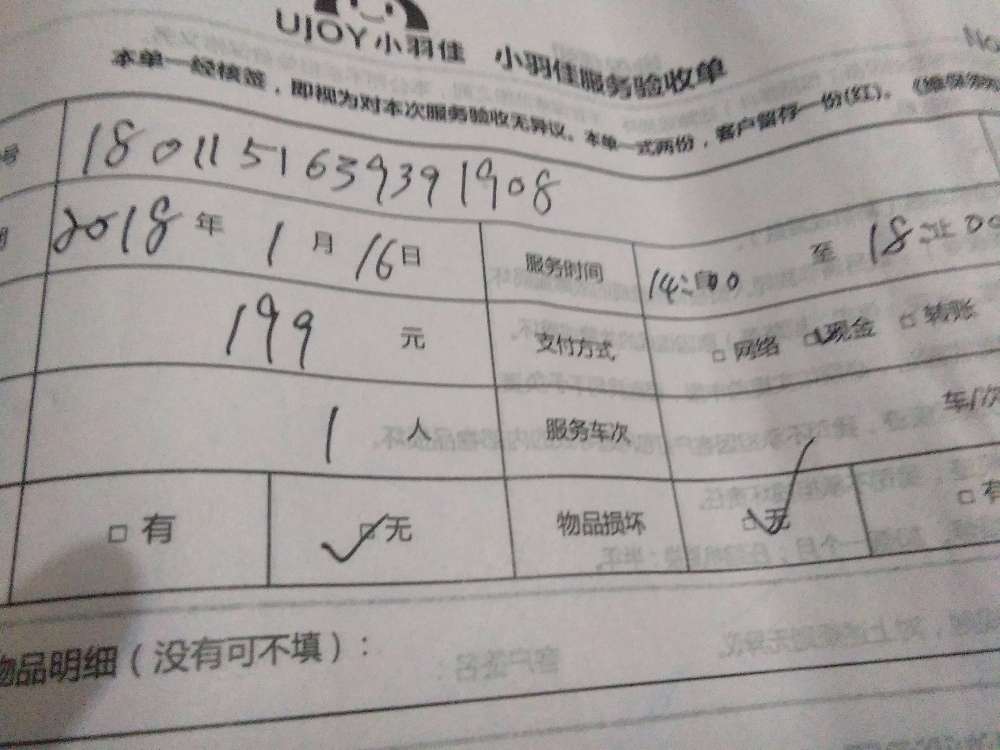 UJOY小羽佳 小羽佳服务验收单 No
本单一经核签，即视为对本次服务验收无异议。本单一式两份，客户留存一份(红)。
号 180115163939 1908
期 2018年1月16日 服务时间 14:00 至 18:00
199元 支付方式 □网络 □现金 □转账
1人 服务车次 车/次
□有 □无 物品损坏 □无 □有
物品明细（没有可不填）：